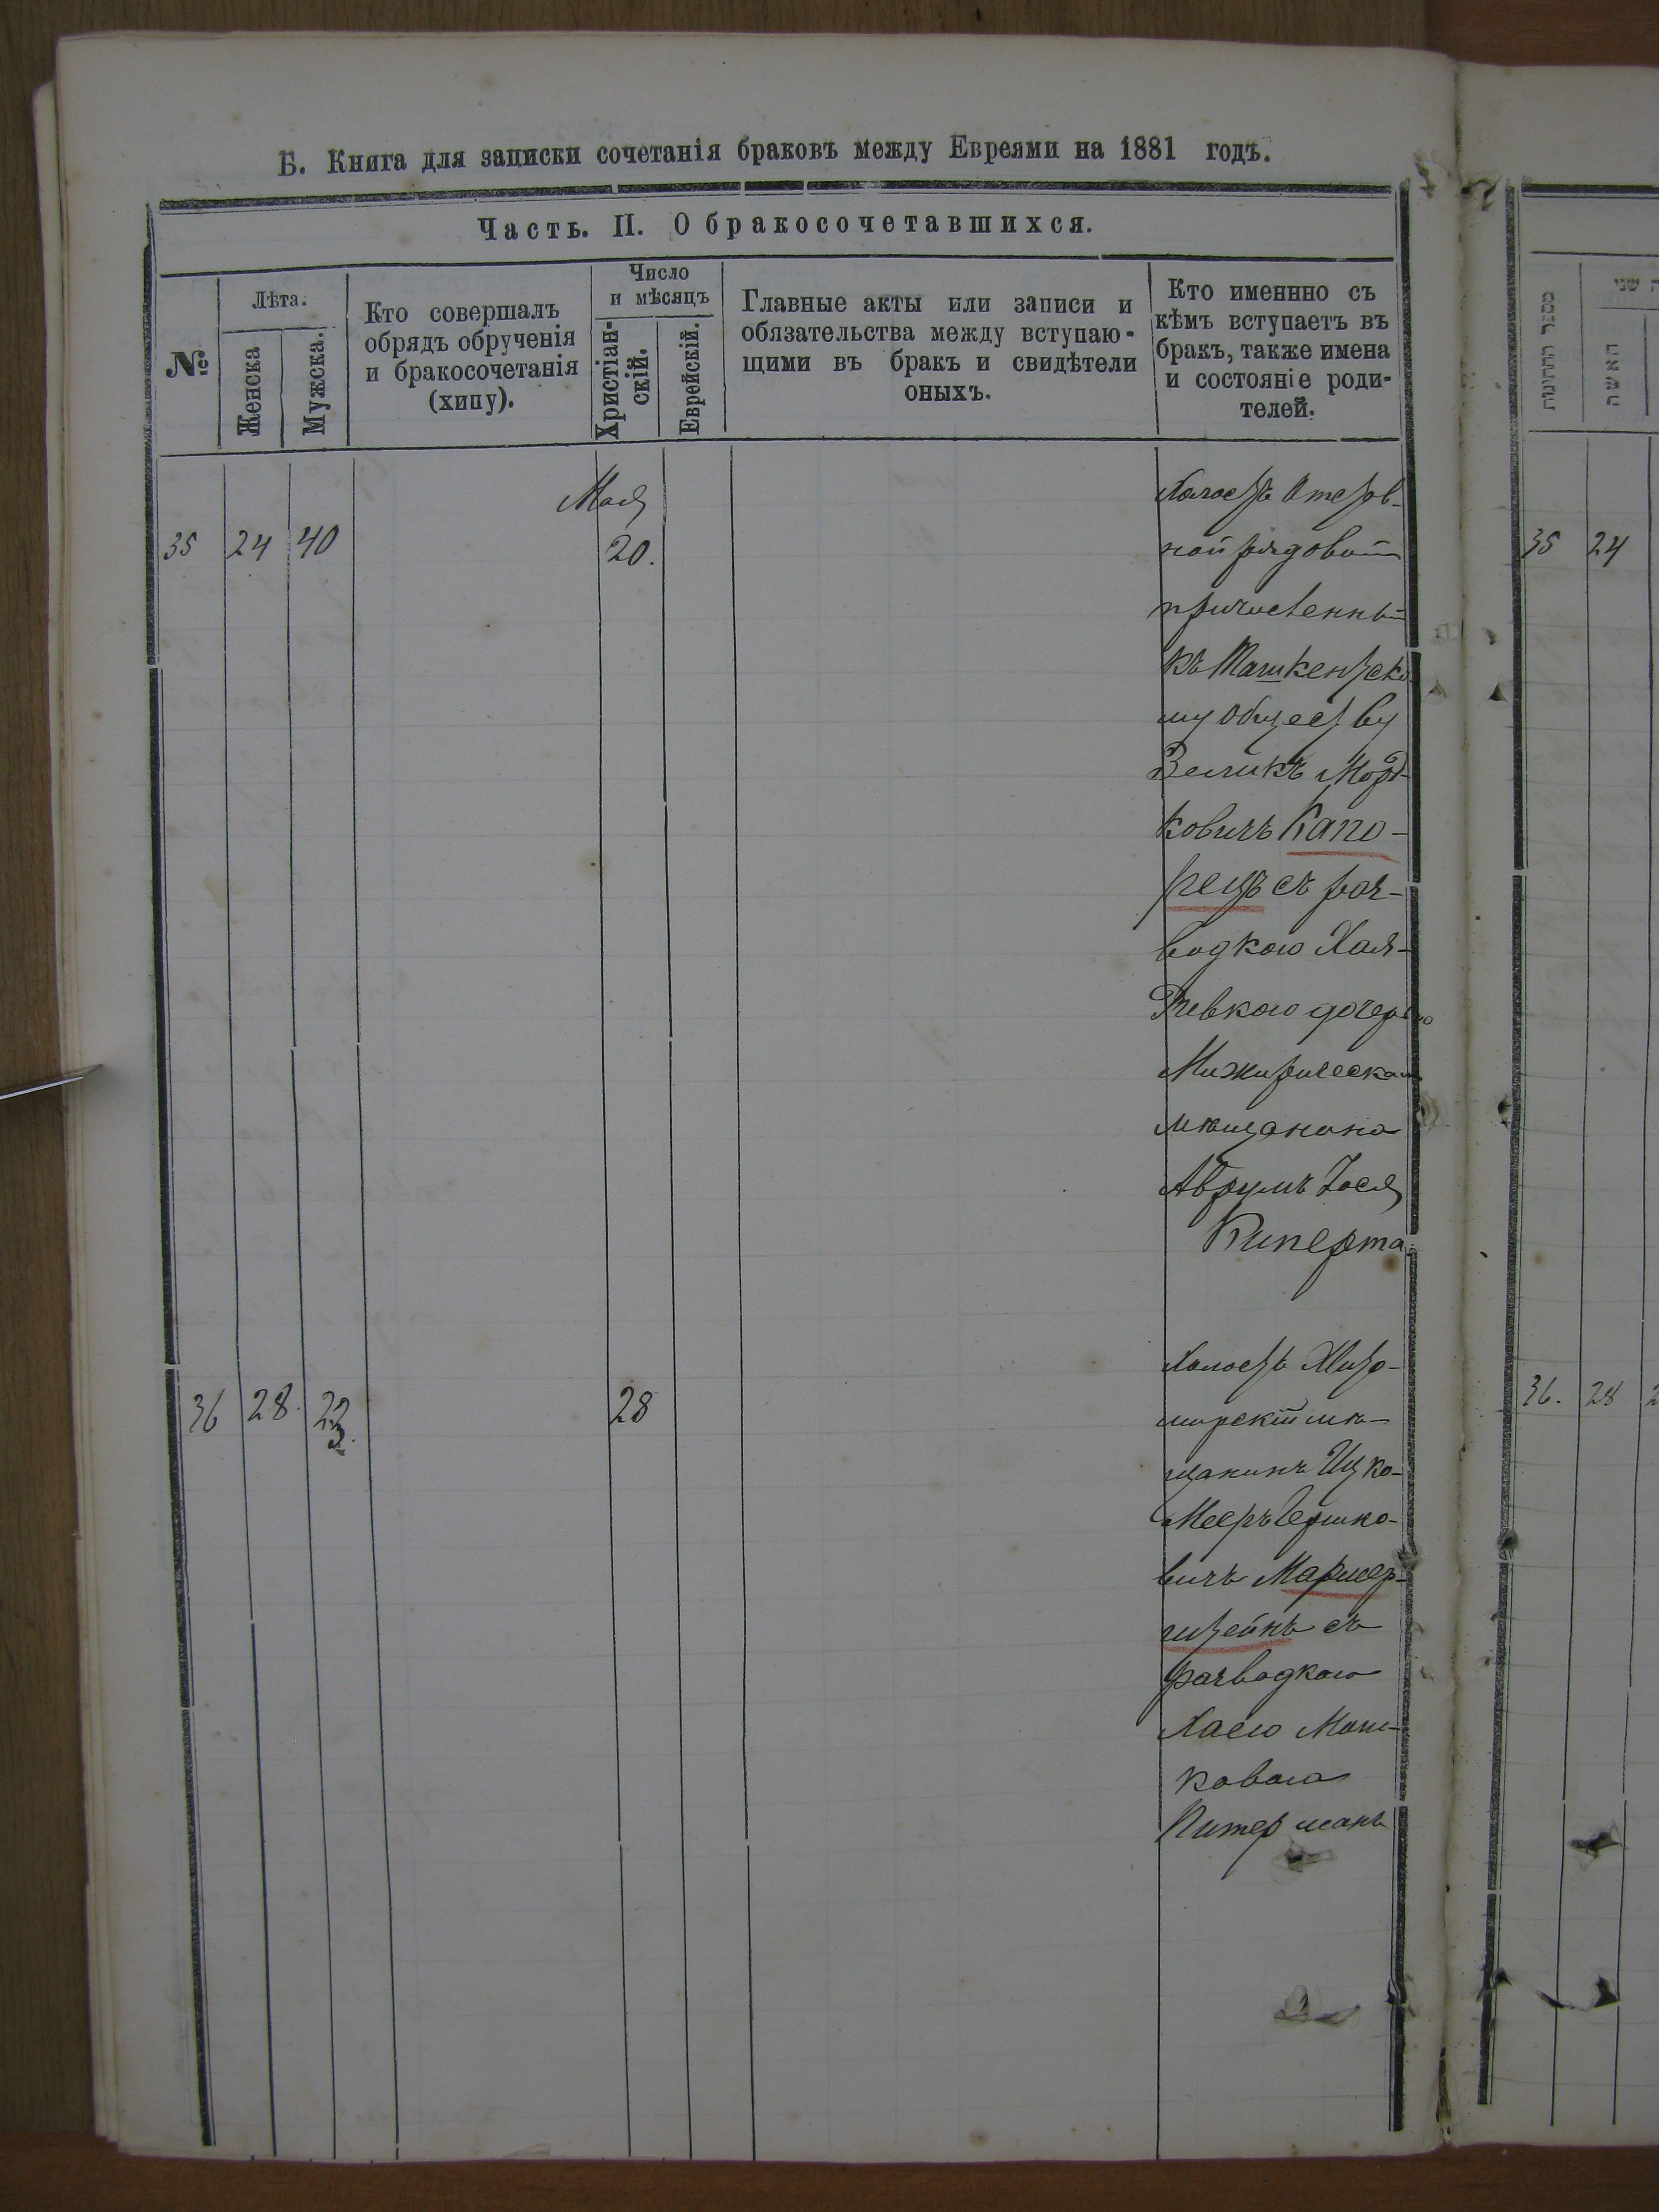 Б. Книга для записки сочетанія браковъ между Евреями на 1881 годъ.
Часть. II. О бракосочетавшихся.
№
Лѣта.
Женска
Мужска.
Кто совершалъ
обрядъ обрученія
и бракосочетанія
(хипу).
Число
и мѣсяцъ
Христіан-
скій.
Еврейскій.
Главные акты или записи и
обязательства между вступаю-
щими въ бракъ и свидѣтели
оныхъ.
Кто именнно съ
кѣмъ вступаетъ въ
бракъ, также имена
и состояніе роди-
телей.
Мая
35 24 40 20.
Холостъ
ной рядовой
причисленный
къ Ташкентско
му обществу
Зеликъ Морд-
ковичъ Капо-
рецъ съ раз-
водкою Хая-
Ривкою дочерью
Мижирическаго
мѣщанина
Аврумъ Іося
Киперта
36 28. 23. 28
Холостъ Жито-
мирскій мѣ-
щанинъ Ицко-
Мееръ Бершко-
вичъ
штейнъ съ
разводкою
Хаею Мош-
ковою
Питерманъ
מספר החתונות
האשה
שני
35 24
36. 28 2